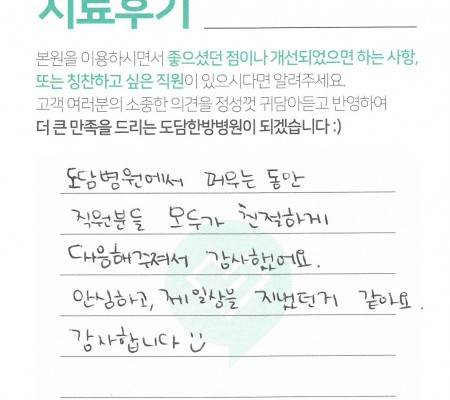 치료후기
본원을 이용하시면서 좋으셨던 점이나 개선되었으면 하는 사항,
또는 칭찬하고 싶은 직원이 있으시다면 알려주세요.
고객 여러분의 소중한 의견을 정성껏 귀담아듣고 반영하여
더 큰 만족을 드리는 도담한방병원이 되겠습니다 :)
도담병원에서 머무는 동안
직원분들 모두가 친절하게
대응해주져서 감사했어요.
안심하고, 제일상을 지냈던거 같아요.
감사합니다